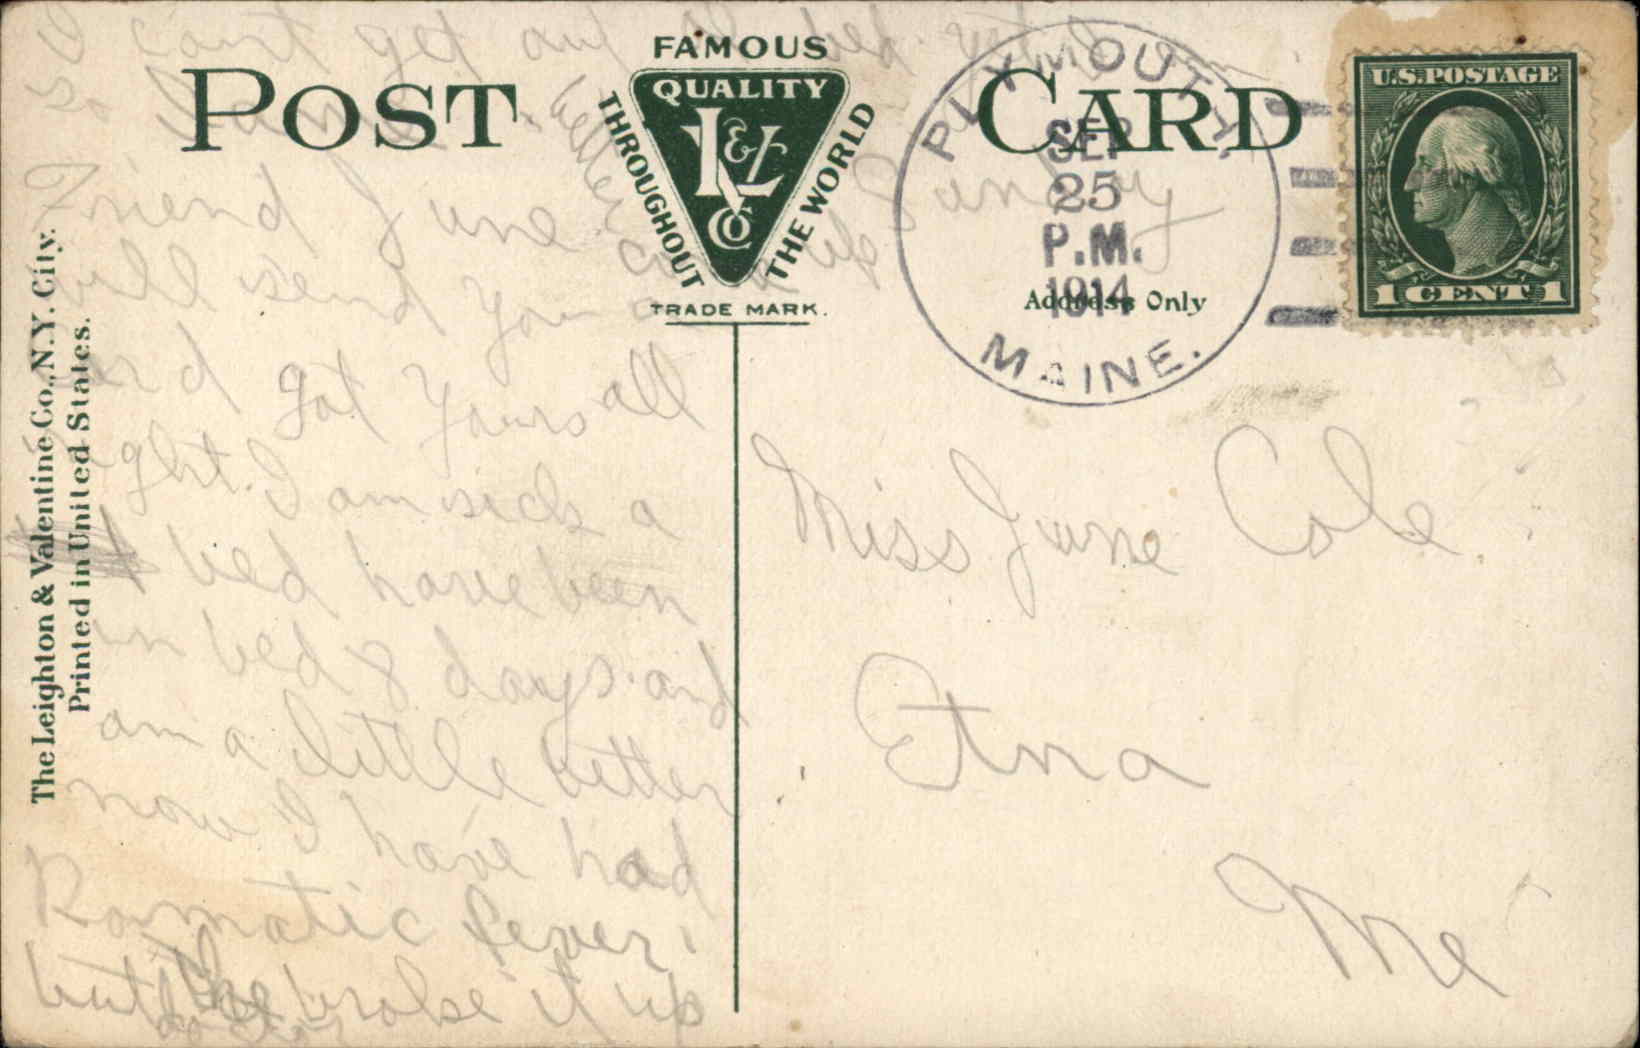 I can't get out of bed
So
POST CARD
FAMOUS
QUALITY
L&V
Co
THROUGHOUT
THE WORLD
TRADE MARK.
Address Only
PLYMOUTH
SEP
25
P.M.
1914
MAINE.
U.S. POSTAGE
1 CENT 1
The Leighton & Valentine Co., N.Y. City.
Printed in United States.
better
Sunday
Friend June
will send you a
card got yours all
right. I am sick a
bed have been
in bed 8 days and
am a little better
now I have had
Romatic fever,
but the broke it up
Miss June Cole
Etna
Me